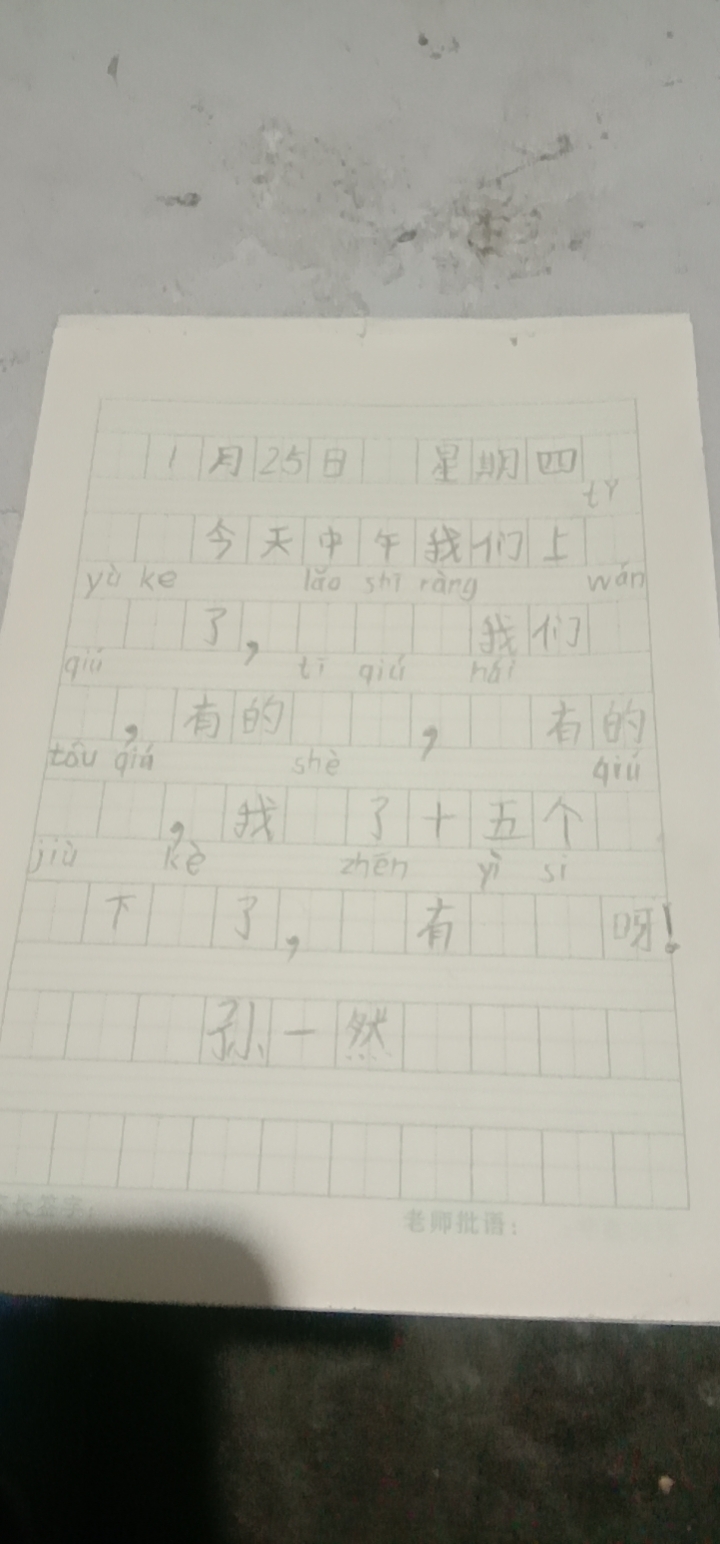 1月25日 星期四
tǐ
今天中午我们上
yù ke lǎo shī ràng wán
了， 我们
qiú tī qiú hái
，有的 ， 有的
tóu qiú shè qiú
，我 了十五个
jiù kè zhēn yì si
下 了， 有 呀！
孙一然
家长签字：
老师批语：